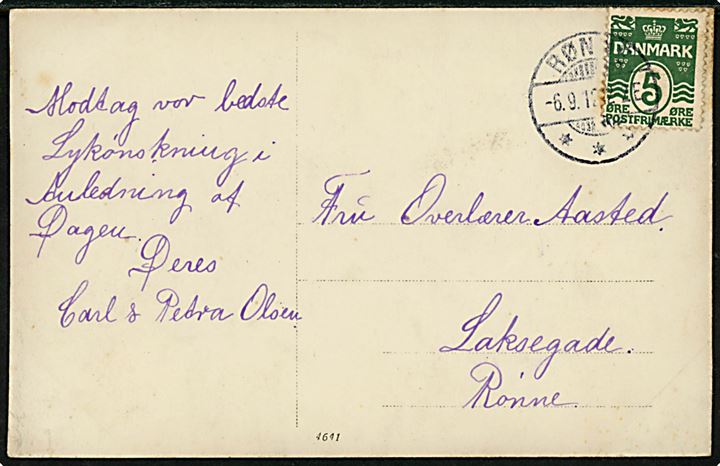 Modtag vor bedste
Lykønskning i
Anledning af
Dagen.
Deres
Carl & Petra Olsen
RØNNE
-6.9.1
DANMARK
5
ØRE ØRE
POSTFRIMÆRKE
Fru Overlærer Aasted.
Laksegade.
Rønne.
4641